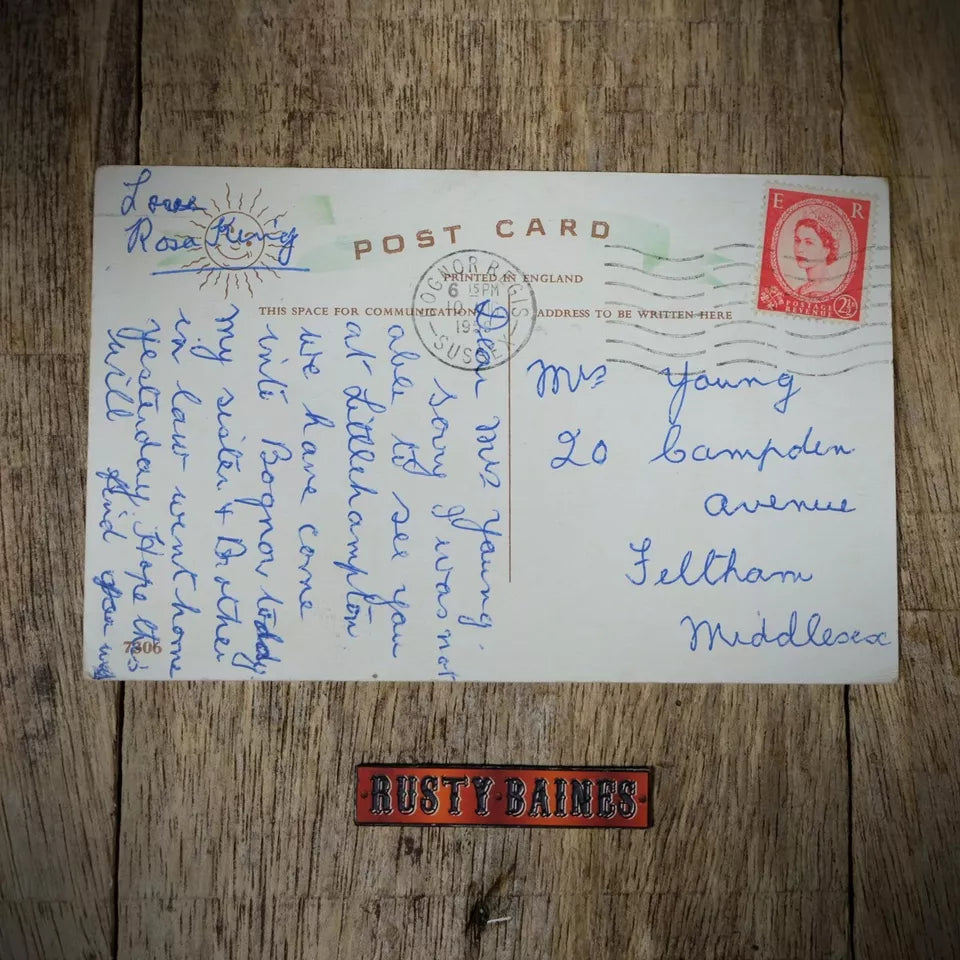 POST CARD
PRINTED IN ENGLAND
THIS SPACE FOR COMMUNICATION
ADDRESS TO BE WRITTEN HERE
BOGNOR REGIS
6 15 PM
10
SUSSEX
E R
POSTAGE
REVENUE
2½
Mrs Young
20 Campden
Avenue
Feltham
Middlesex
Dear Mrs Young
sorry I was not
able to see you
at Littlehampton
we have come
into Bognor today
my sister & Brother
in law went home
yesterday. Hope this
will find you well
Love
Rosa King
7306
RUSTY BAINES